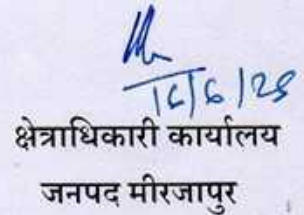 16/6/25
क्षेत्राधिकारी कार्यालय
जनपद मीरजापुर